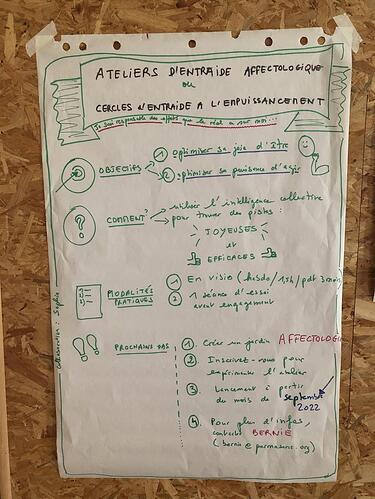 ATELIERS D'ENTRAIDE AFFECTOLOGIQUE
ou
CERCLES D'ENTRAIDE A L'EMPUISSANCEMENT
Je suis responsable des effets que le réel a sur moi...
OBJECTIFS
1 optimiser sa joie d'Être
2 optimiser sa puissance d'agir
COMMENT?
utiliser l'intelligence collective
pour trouver des pistes :
JOYEUSES
et
EFFICACES
MODALITÉS
PRATIQUES
1 En visio (hebdo / 1,5h / pdt 3 mois)
2 1 séance d'essai
avant engagement
PROCHAINS PAS
1. Créer un jardin AFFECTOLOGI
2. Inscrivez-vous pour
expérimenter l'atelier
3 Lancement à partir
du mois de septembre
2022
4. Pour plus d'infos,
contacter BERNIE
(bernie@permasens.org)
Sophie